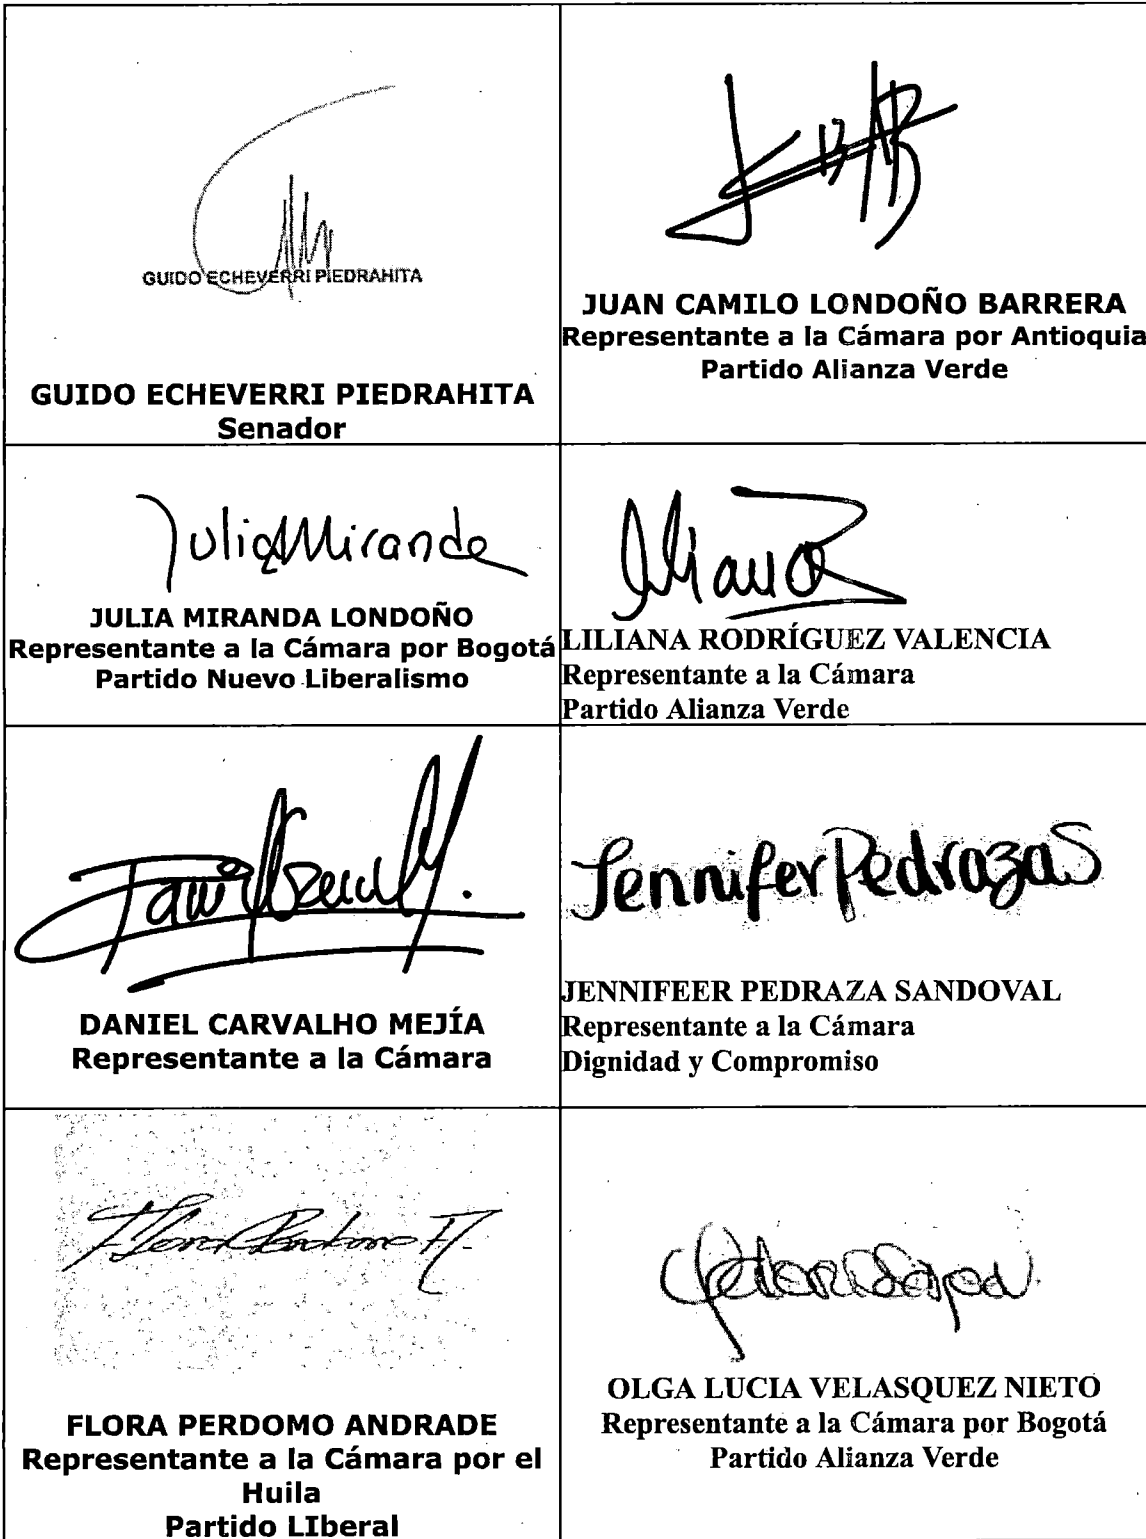 GUIDO ECHEVERRI PIEDRAHITA
GUIDO ECHEVERRI PIEDRAHITA
Senador
JUAN CAMILO LONDOÑO BARRERA
Representante a la Cámara por Antioquia
Partido Alianza Verde
Julia Miranda
JULIA MIRANDA LONDOÑO
Representante a la Cámara por Bogotá
Partido Nuevo Liberalismo
LILIANA RODRÍGUEZ VALENCIA
Representante a la Cámara
Partido Alianza Verde
DANIEL CARVALHO MEJÍA
Representante a la Cámara
Jennifer Pedraza S
JENNIFEER PEDRAZA SANDOVAL
Representante a la Cámara
Dignidad y Compromiso
FLORA PERDOMO ANDRADE
Representante a la Cámara por el
Huila
Partido LIberal
OLGA LUCIA VELASQUEZ NIETO
Representante a la Cámara por Bogotá
Partido Alianza Verde